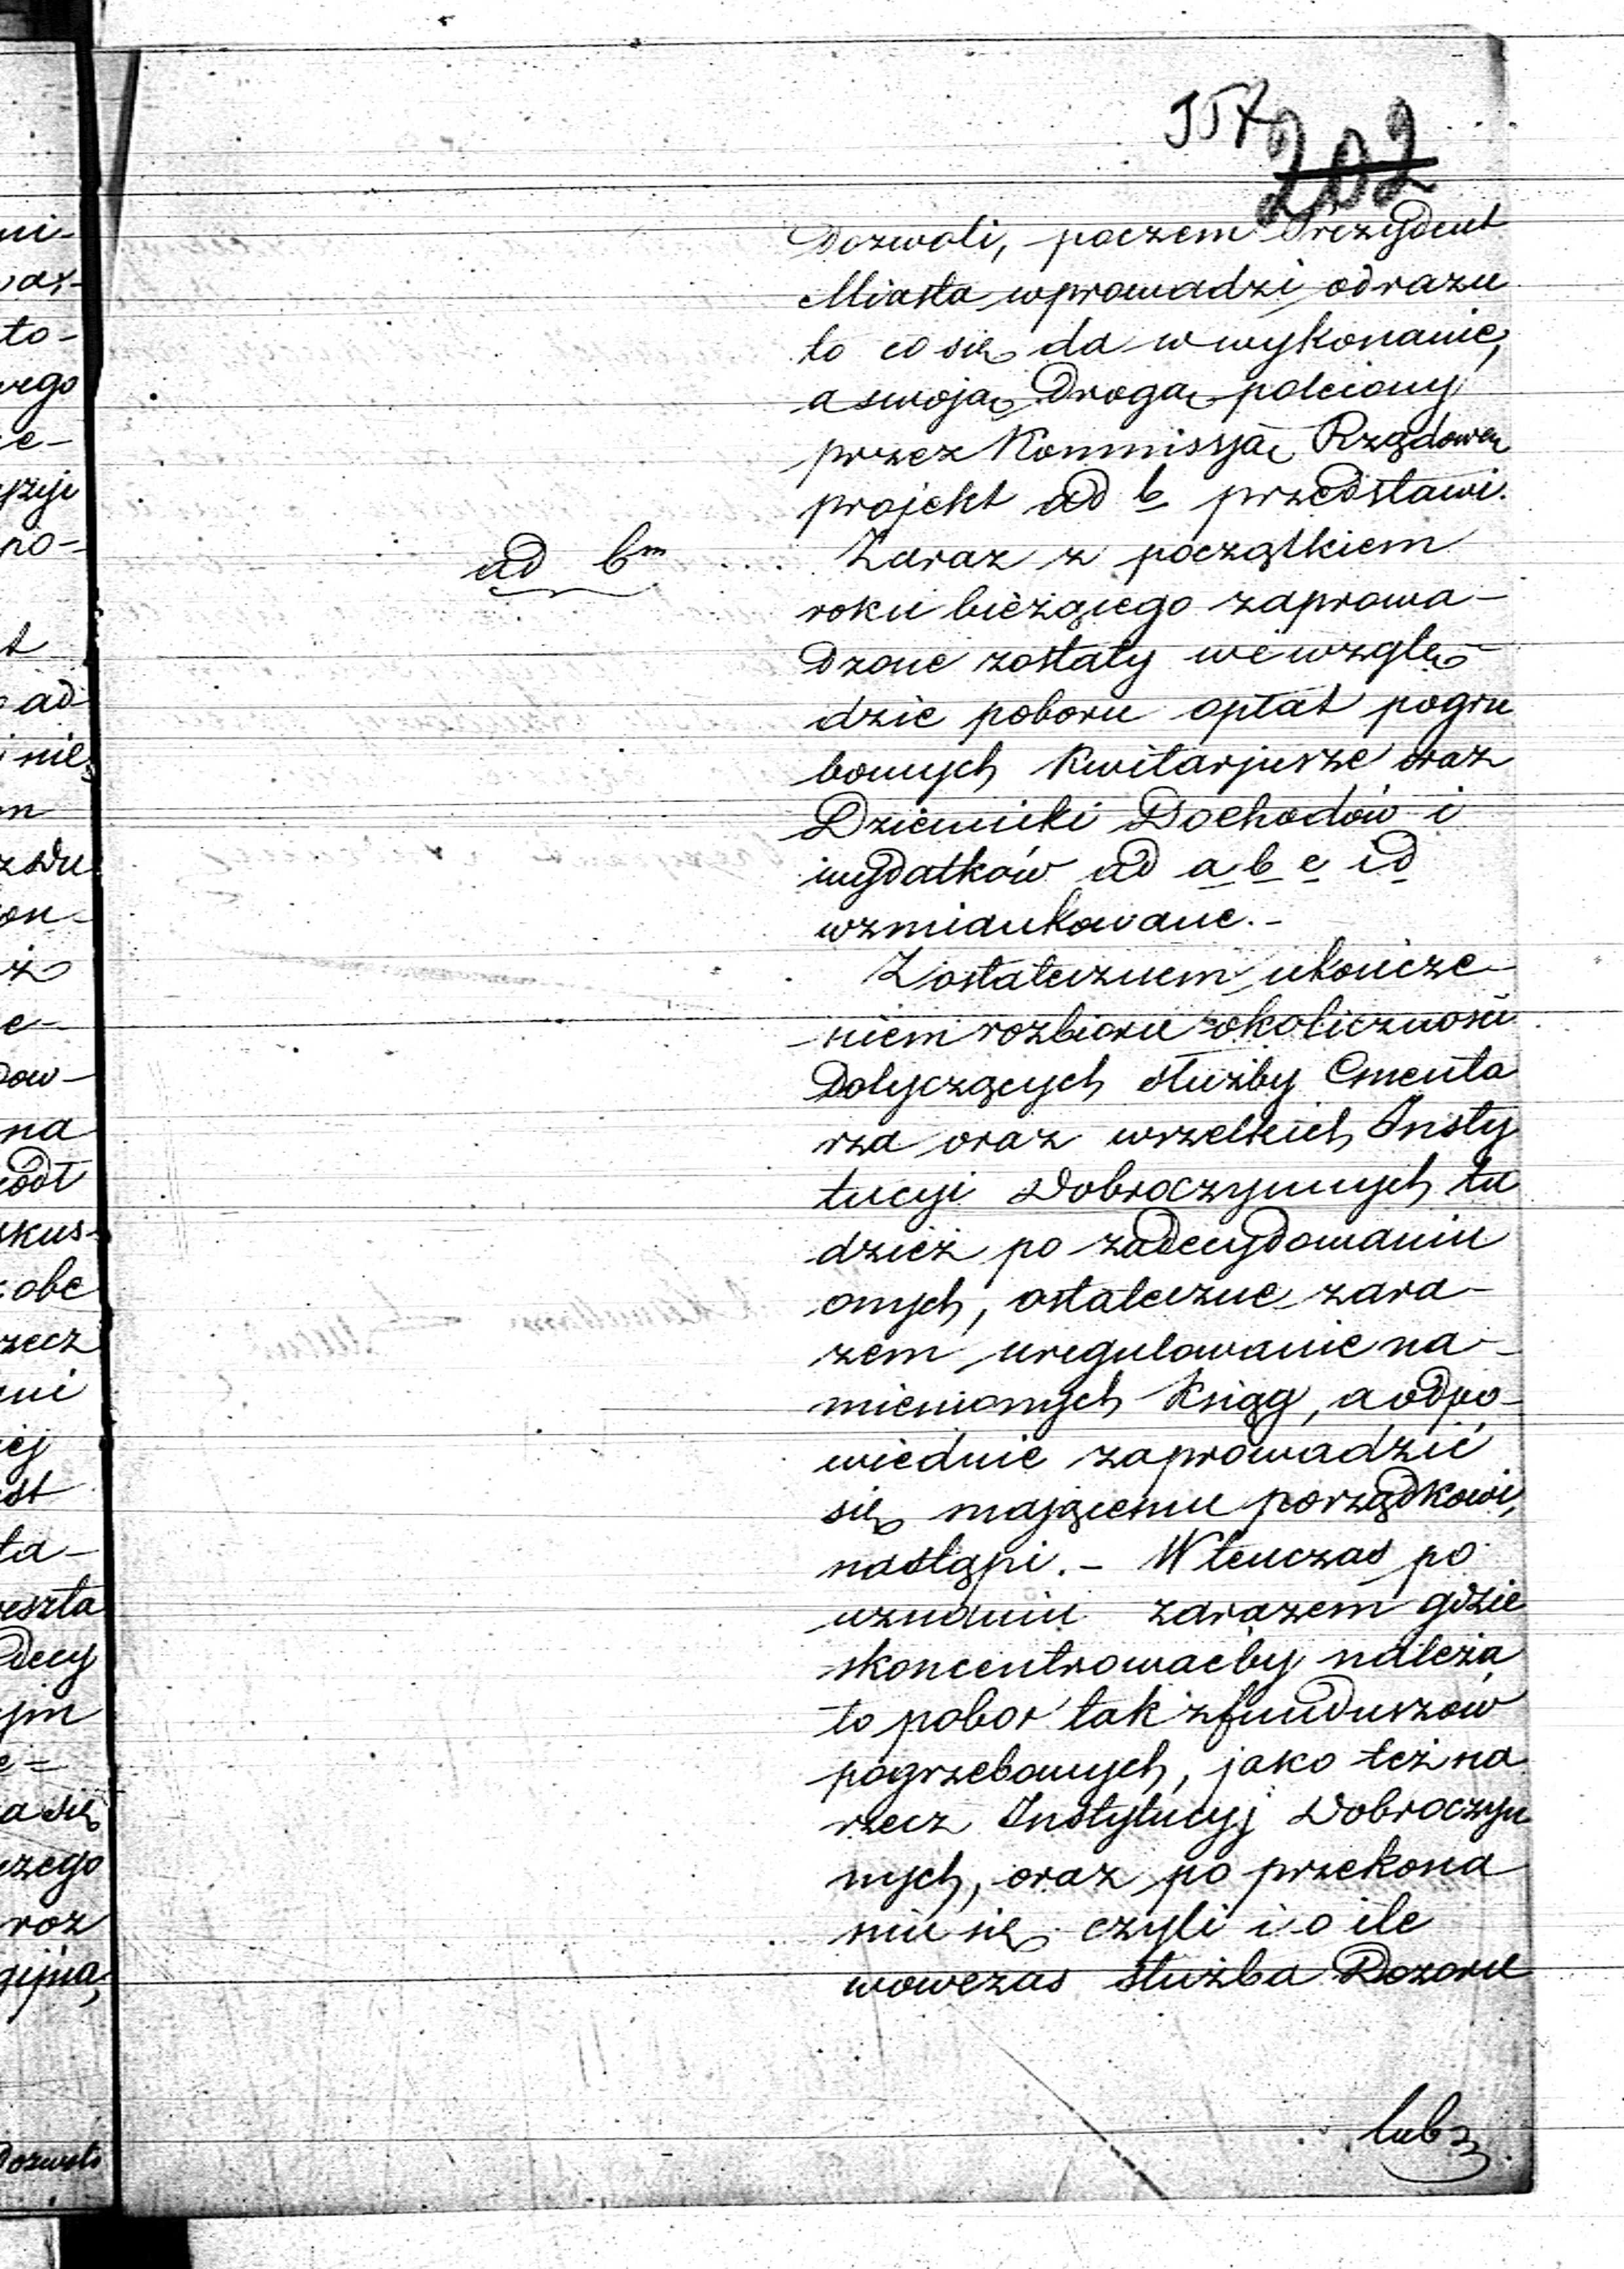 357
202
Dozwoli, poczem Prezydent
Miasta wprowadzi odrazu
to co się da w wykonanie,
a swoją Drogą polecony
przez Kommissyą Rządową
projekt ad b przedstawi.
ad b<sup>m</sup> .... Zaraz z początkiem
roku bieżącego zaprowa-
dzone zostały we wzglę-
dzie poboru opłat pogrze
bowych Kwitarjusze oraz
Dzienniki Dochodów i
wydatków ad a b c i d
wzmiankowane.-
Z ostatecznem ukończe-
niem rozbioru okoliczności
Dotyczących służby Cmenta
rza oraz wszelkich Insty
tucyi Dobroczynnych tu
dzież po zadecydowaniu
onych, ostateczne zara-
zem uregulowanie na-
mienionych Ksiąg, a odpo-
wiednie zaprowadzić
się mającemu porządkowi,
nastąpi.- Wtenczas po
uznaniu zarazem gdzie
skoncentrowaćby należa
ło pobor tak z funduszów
pogrzebowych, jako też na
rzecz Instytucyj Dobroczyn
nych, oraz po przekona
niu się czyli i o ile
wowczas służba Dozoru
lub
ni-
to-
wego
e-
no-
t
ad
nie
m
on-
ż
e-
dow-
na
skus-
obe
rzecz
ni
ej
st
ta-
reszta
decy
ym
e-
a się
czego
roz
Dozwoli